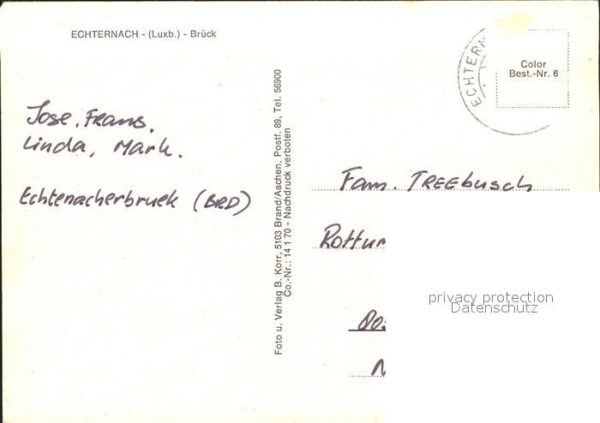 ECHTERNACH - (Luxb.) - Brück
ECHTERN
Color
Best.-Nr. 6
Jose, Frans,
Linda, Mark.
Echtenacherbruck (BRD)
Foto u. Verlag B. Korr, 5103 Brand/Aachen, Postf. 89, Tel. 56900
Co.-Nr.: 14 1 70 - Nachdruck verboten
Fam. TREEbusch
Rottu
privacy protection
Datenschutz